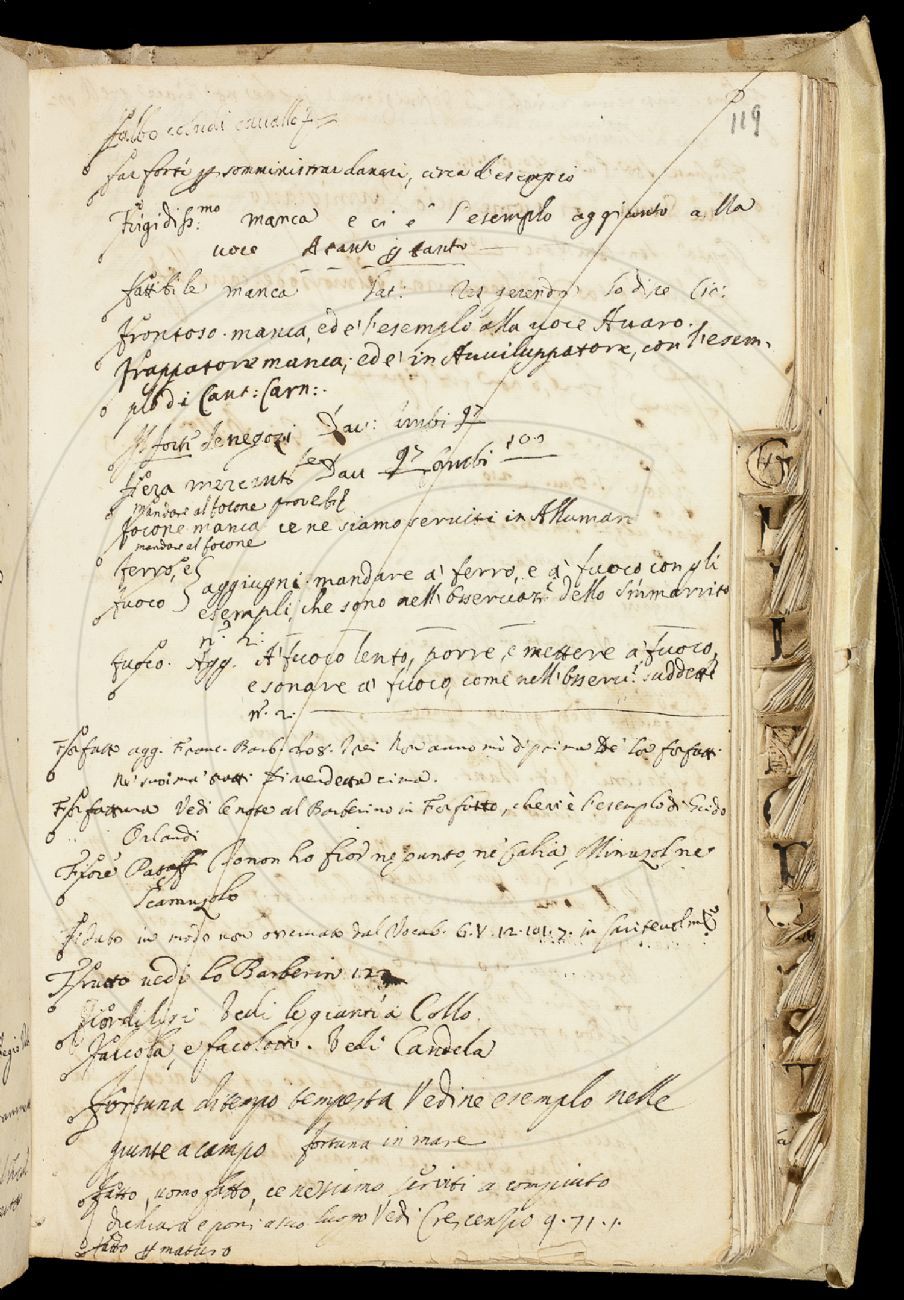 119
falbo
far forti p somministrar danari, cerca l'esempio
Frigidiss.mo manca e ci è l'esemplo aggiunto alla
voce Atanto p tanto
fattibile manca Lat: Res gerendo lo dice Cic:
frontoso. manca, ed è l'esemplo alla voce Auaro.
frappatore manca, ed è in Auuiluppatore, con l'esem-
plo di Cant: Carn:.
forte de negozi Dau: Imbi 97
fiera Dau 97 Cambi 101
mandare al focone prouerb
focone manca ce ne siamo seruiti in Allumare
mandare al focone
ferro, e
fuoco
aggiugni mandare à ferro, e à fuoco con gli
esempli, che sono nell'osseruaz. dello Smarrito
n.º 2:
fuoco. Agg. A fuoco lento, porre, e mettere à fuoco,
e sonare à fuoco, come nell'osseru.ⁱ suddette
n.º 2.
Forfatto agg. Franc. Barb.
di uendetta cima.
Forfattura Vedi le note al Barberino in Forfatto, che ui è l'esemplo di Guido
Orlandi
Fiore Pataff Io non ho fior ne punto, ne Calia, Minuzol, ne
Scamuzolo
fidato in modo non osseruato dal Vocab. G.V. 12. 101. 7. in
Frutto uedi lo Barberin 122
Fiordilisi Vedi le giunt. a Collo.
Faccola, e facolotti. Vedi Candela
fortuna di tempo tempesta Vedine esemplo nelle
giunte a campo fortuna in mare
fatto, uomo fatto, ce ne siamo seruiti a compiuto
dichiara e poni a suo luogo Vedi Crescenzio 9. 71. 1.
fatto p maturo
G